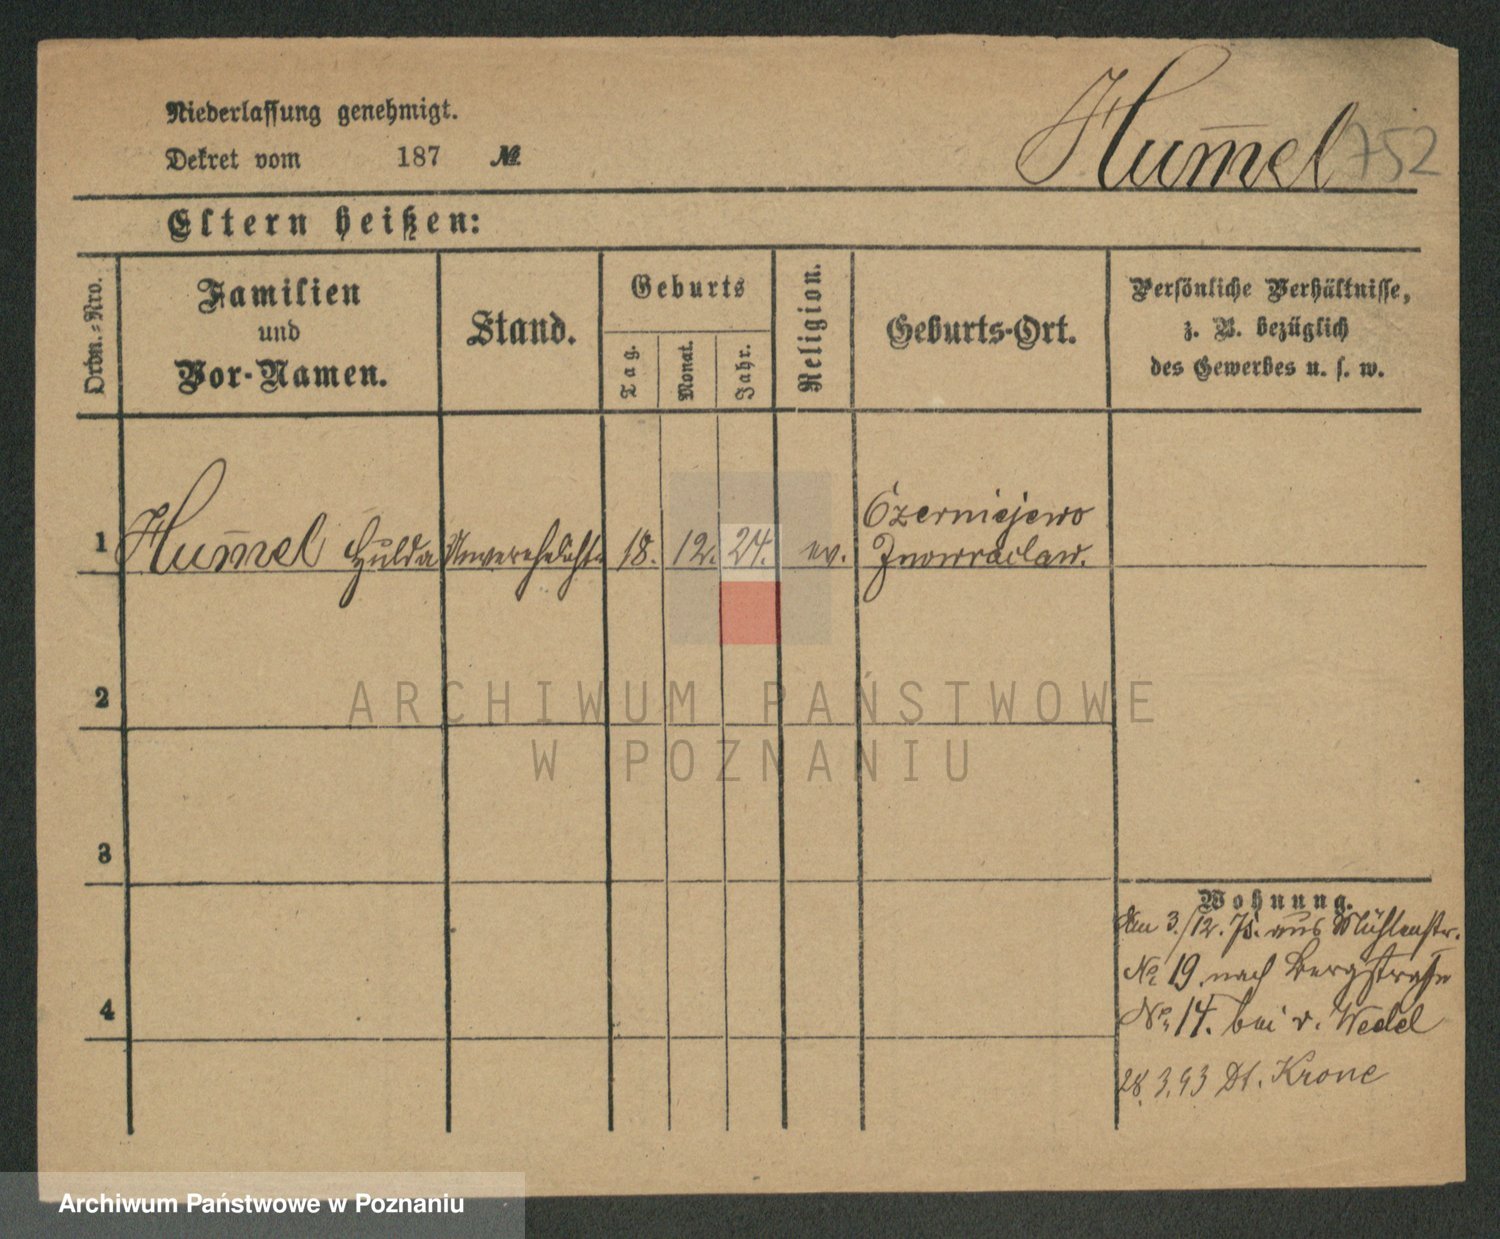 Niederlassung genehmigt.
Dekret vom 187 №
Hum̅el 752
Eltern heißen:
Ordn.-Nro.
Familien und Vor-Namen.
Stand.
Geburts
Tag.
Monat.
Jahr.
Religion.
Geburts-Ort.
Persönliche Verhältnisse,
z. B. bezüglich
des Gewerbes u. s. w.
Czerniejewo
1 Hum̅el Hulda Unverehelichte 18. 12. 24. ev. Inowraclaw.
2
ARCHIWUM PAŃSTWOWE
W POZNANIU
3
Wohnung.
Am 3./12. 75. aus Mühlenstr.
№ 19 nach Bergstraße
4
№ 14. bei v. Wedel
28.3.93 Dt. Krone
Archiwum Państwowe w Poznaniu